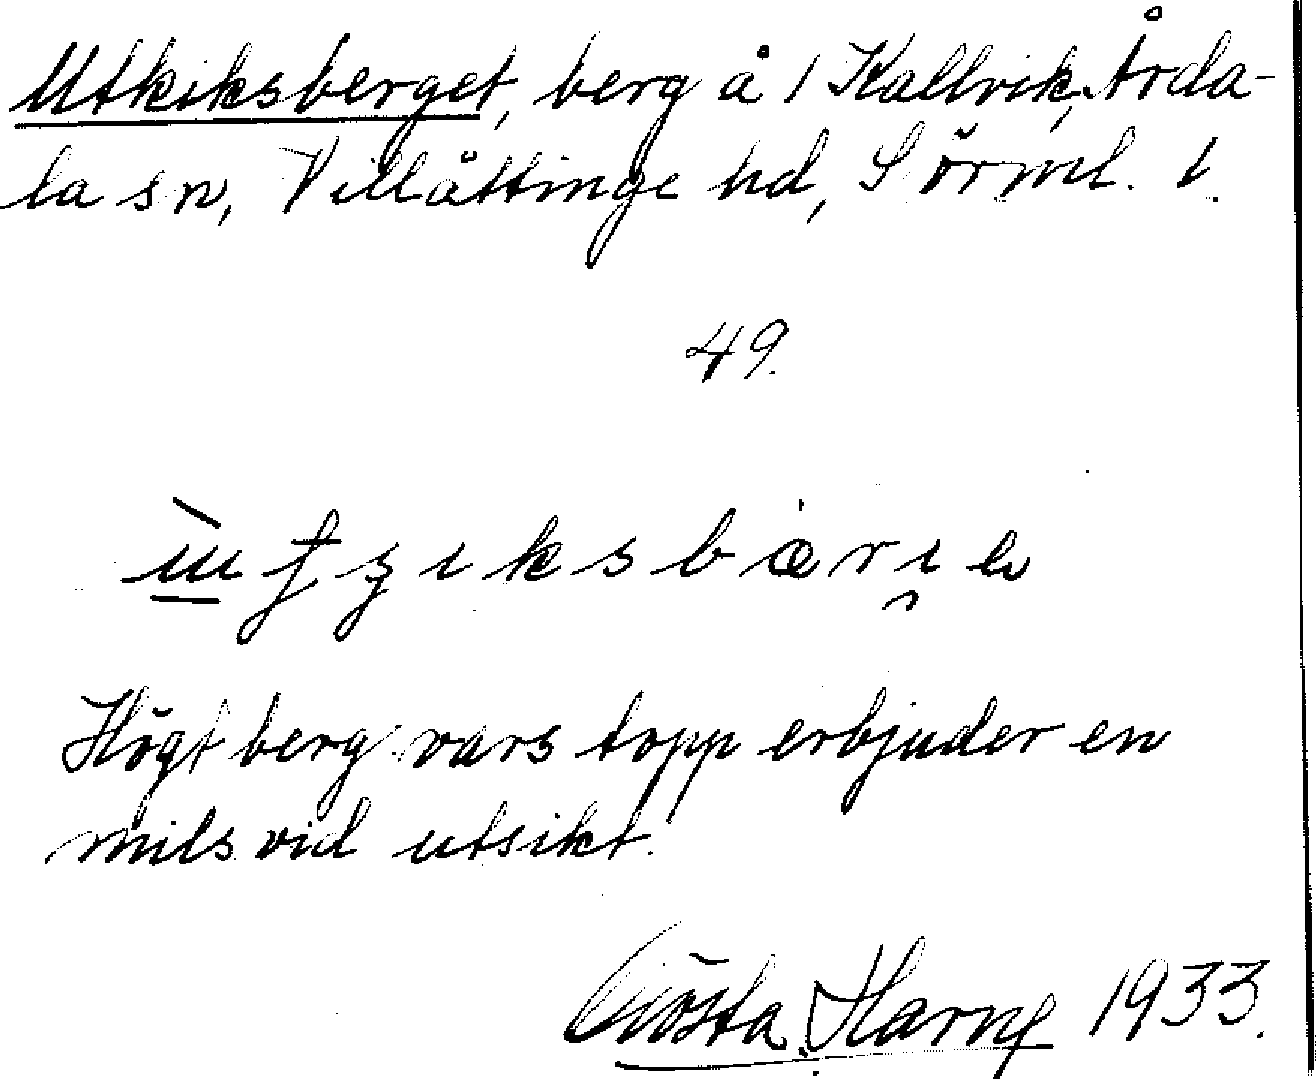 Utkiksberget, berg å 1 Kallvik, Årda-
la sn, Villåttinge hd, Sörml. l.
49.
Högt berg vars topp erbjuder en
mils vid utsikt.
Gösta Harne 1933.